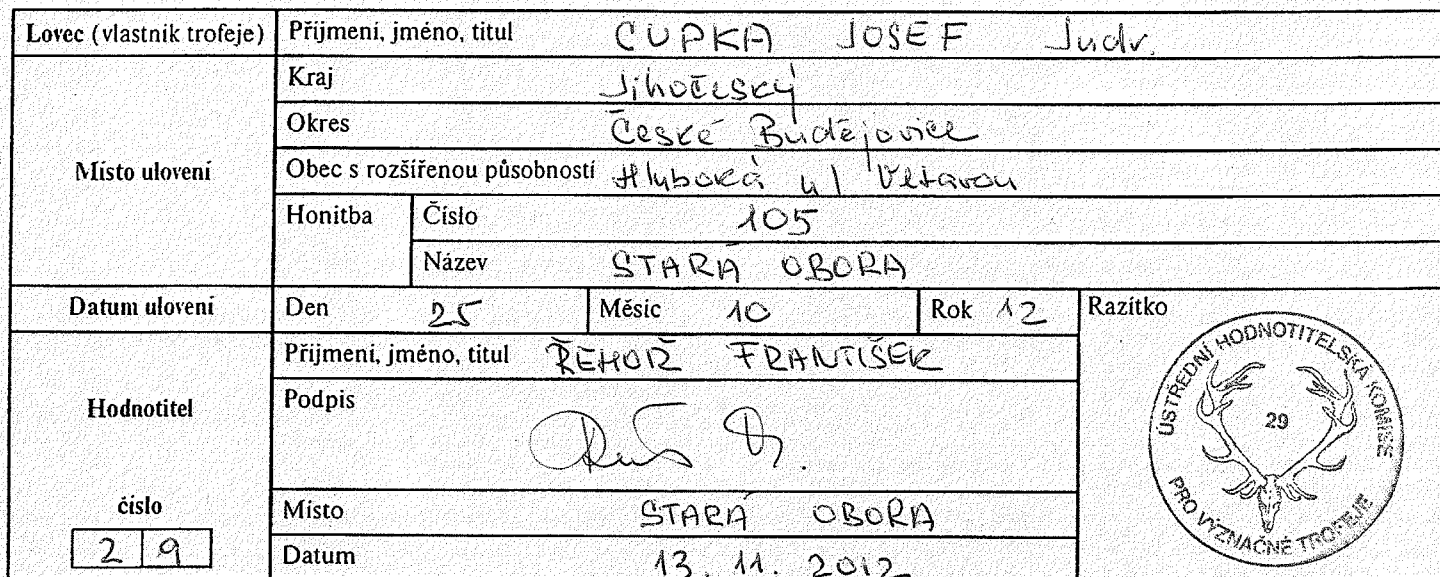 Lovec (vlastník trofeje) Příjmení, jméno, titul CUPKA JOSEF Judr.
Místo ulovení
Kraj Jihočeský
Okres České Budějovice
Obec s rozšířenou působností Hluboká n/ Vltavou
Honitba Číslo 105
Název STARÁ OBORA
Datum ulovení Den 25 Měsíc 10 Rok 12 Razítko
Hodnotitel
Příjmení, jméno, titul ŘEHOŘ FRANTIŠEK
Podpis
číslo
29
Místo STARÁ OBORA
Datum 13. 11. 2012
ÚSTŘEDNÍ HODNOTITELSKÁ KOMISE
29
PRO VÝZNAČNÉ TROFEJE